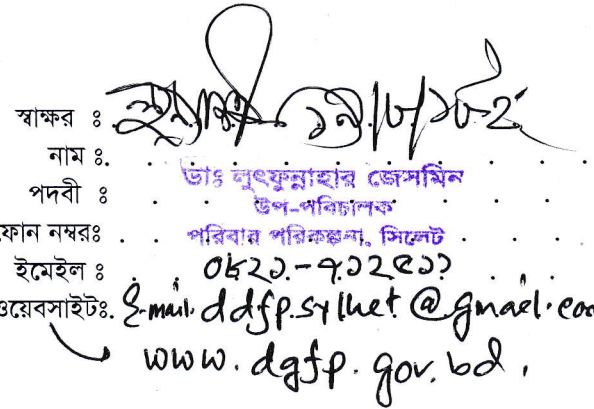 স্বাক্ষর ঃ
নাম ঃ
ডাঃ লুৎফুন্নাহার জেসমিন
পদবী ঃ
উপ-পরিচালক
ফোন নম্বরঃ
পরিবার পরিকল্পনা, সিলেট
ইমেইল ঃ
ওয়েবসাইটঃ E-mail: ddfp.sylhet@gmail.com
www.dgfp.gov.bd.